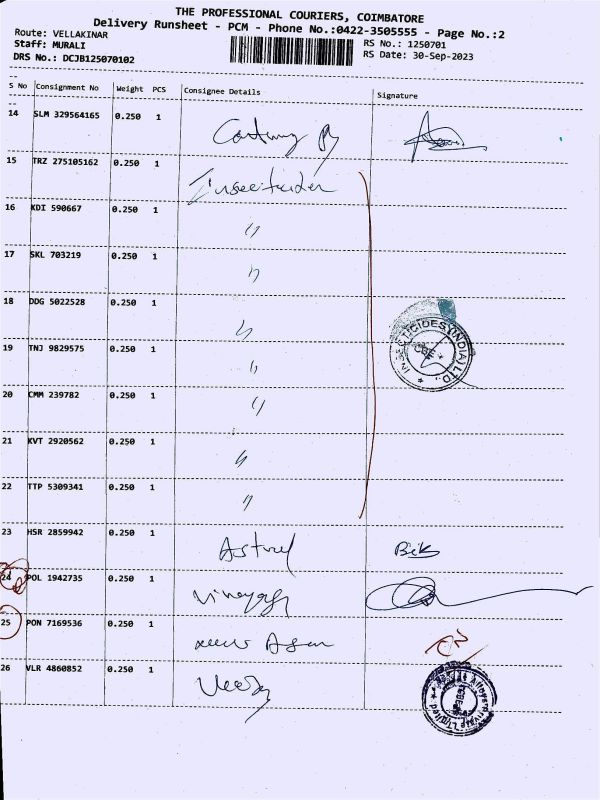 THE PROFESSIONAL COURIERS, COIMBATORE
Delivery Runsheet - PCM - Phone No.:0422-3505555 - Page No.:2
Route: VELLAKINAR
RS No.: 1250701
Staff: MURALI
RS Date: 30-Sep-2023
DRS No.: DCJB125070102
S No Consignment No Weight PCS Consignee Details Signature
14 SLM 329564165 0.250 1
15 TRZ 275105162 0.250 1 Insecticides
16 KDI 590667 0.250 1 "
17 SKL 703219 0.250 1 "
18 DDG 5022528 0.250 1 "
INSECTICIDES (INDIA) LTD.
CBE
19 TNJ 9829575 0.250 1 "
20 CMM 239782 0.250 1 "
21 KVT 2920562 0.250 1 "
22 TTP 5309341 0.250 1 "
23 HSR 2859942 0.250 1 Astral
24 POL 1942735 0.250 1 Vinayaga
25 PON 7169536 0.250 1
26 VLR 4860852 0.250 1